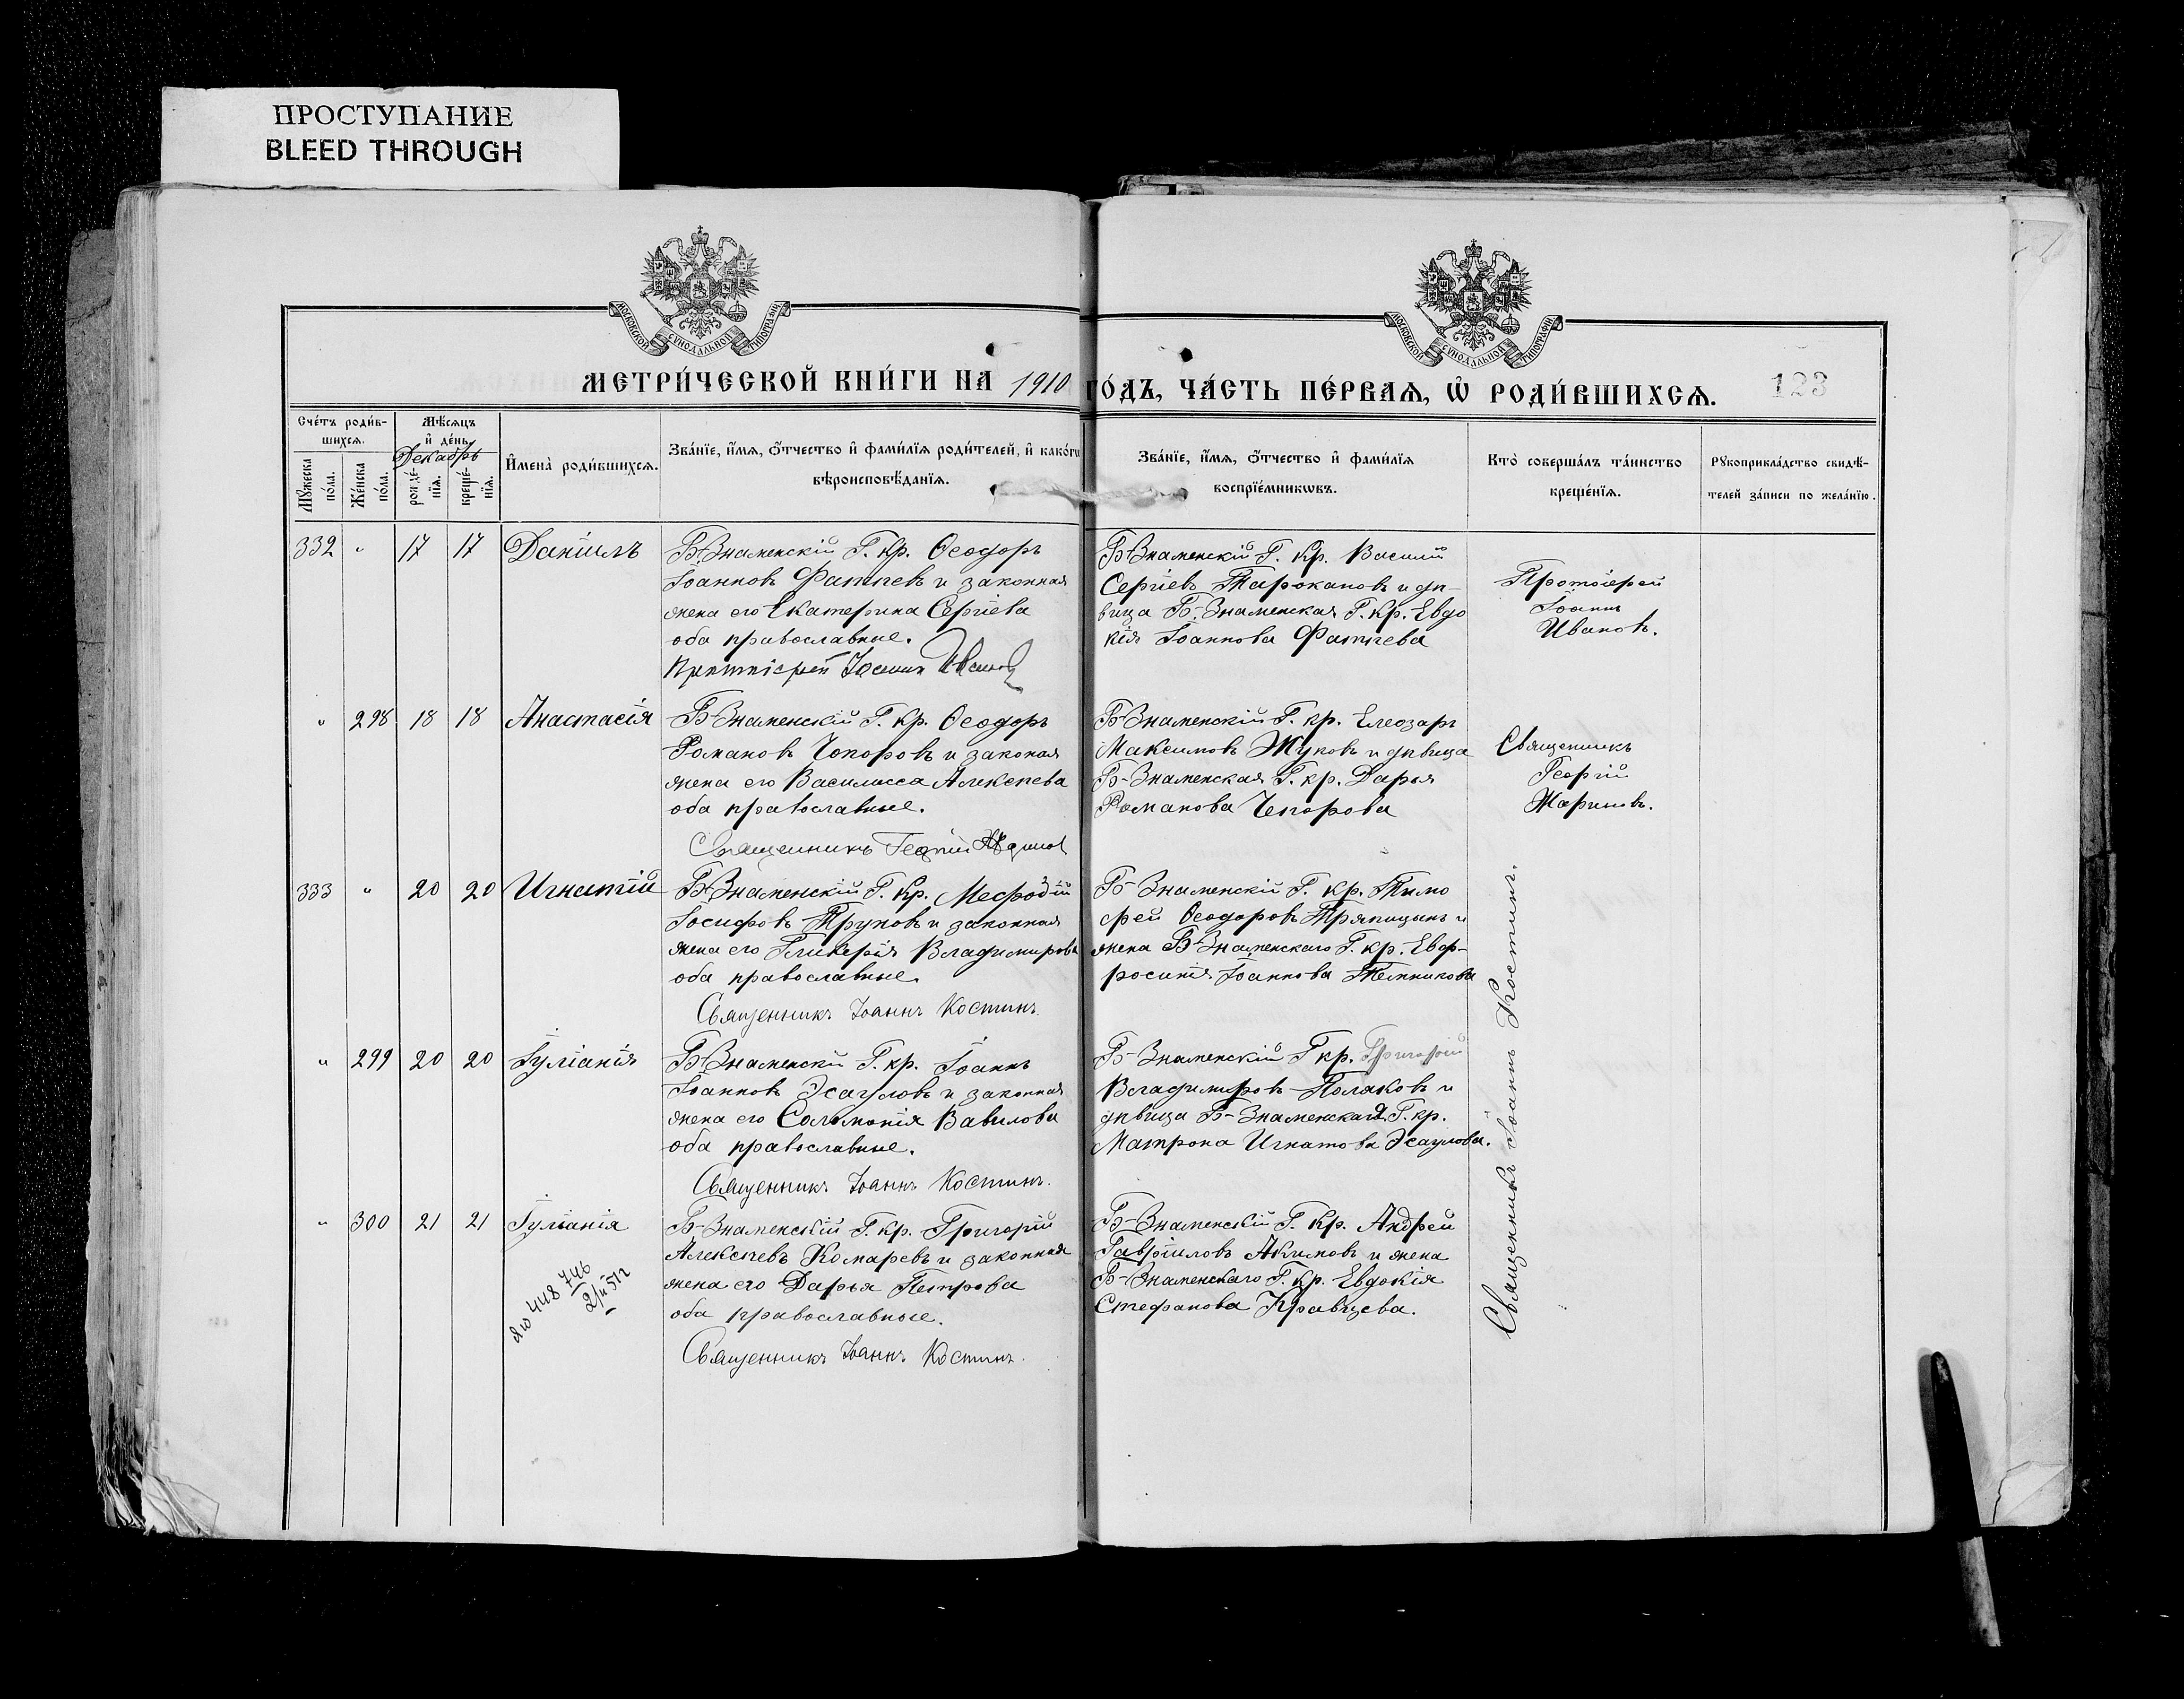 ПРОСТУПАНИЕ
BLEED THROUGH
МОСКОВСКОЙ СѴНОДАЛЬНОЙ ТИПОГРАФІИ
МОСКОВСКОЙ СѴНОДАЛЬНОЙ ТИПОГРАФІИ
МЕТРИ́ЧЕСКОЙ КНИ́ГИ НА 1910 ГО́ДЪ, ЧА́СТЬ ПЕ́РВАЯ, Ѡ РОДИ́ВШИХСЯ.
123
Сче́тъ роди́в-
шихся.
Мѣ́сяцъ
и҆ де́нь
Декабрь
Мꙋ́жеска
по́ла.
Же́нска
по́ла.
рожде́-
нїя.
креще́-
нїя.
И҆мена̀ роди́вшихся.
Зва́нїе, и҆́мя, ѻ҆́тчество и҆ фами́лїя роди́телей, и҆ како́гѡ
вѣроисповѣ́данїя.
Зва́нїе, и҆́мя, ѻ҆́тчество и҆ фами́лїя
воспрїе́мникѡвъ.
Кто̀ соверша́лъ та́инство
креще́нїя.
Рꙋкоприкла́дство свидѣ́-
телей за́писи по жела́нїю.
332 " 17 17 Даніилъ
Б-Знаменскій Г. Кр. Ѳеодоръ
Іоанновъ Фатѣевъ и законная
жена его Екатерина Сергіева
оба православные.
Протоіерей Іоаннъ Ивановъ
Б-Знаменскій Г. Кр. Василій
Сергіевъ Тарокановъ и дѣ-
вица Б-Знаменская Г. Кр. Евдо
кія Іоаннова Фатѣева
Протоіерей
Іоаннъ
Ивановъ.
" 298 18 18 Анастасія
Б-Знаменскій Г. Кр. Ѳеодоръ
Романовъ Чепоровъ и законая
жена его Василисса Алексѣева
оба православные.
Священникъ Георгій Жариновъ
Б-Знаменскій Г. кр. Елеозаръ
Максимовъ Жуковъ и дѣвица
Б-Знаменская Г. кр. Дарья
Романова Чепорова
Священникъ
Георгій
Жариновъ.
333 " 20 20 Игнатій
Б-Знаменскій Г. Кр. Меѳодій
Іосифовъ Труновъ и законная
жена его Гликерія Владимирова
оба православные.
Священникъ Іоаннъ Костинъ.
Б-Знаменскій Г. кр. Тимо
фей Ѳеодоровъ Тряпицынъ и
жена Б-Знаменскаго Г. кр. Евф-
росинія Іоаннова Темникова
" 299 20 20 Іуліанія
Б-Знаменскій Г. кр. Іоаннъ
Іоанновъ Эсауловъ и законная
жена его Соломонія Вавилова
оба православные.
Священникъ Іоаннъ Костинъ.
Б-Знаменскій Г кр. Григорій
Владимировъ Поляковъ и
дѣвица Б-Знаменская Г. кр.
Матрона Игнатова Эсаулова.
" 300 21 21 Іуліанія
Б-Знаменскій Г. кр. Григорій
Алексѣевъ Комаревъ и законная
жена его Дарья Петрова
оба православные.
Священникъ Іоаннъ Костинъ.
Б-Знаменскій Г. Кр. Андрей
Гавріиловъ Акимовъ и жена
Б-Знаменскаго Г. Кр. Евдокія
Стефанова Кравцева.
448 746
Священникъ Іоаннъ Костинъ.